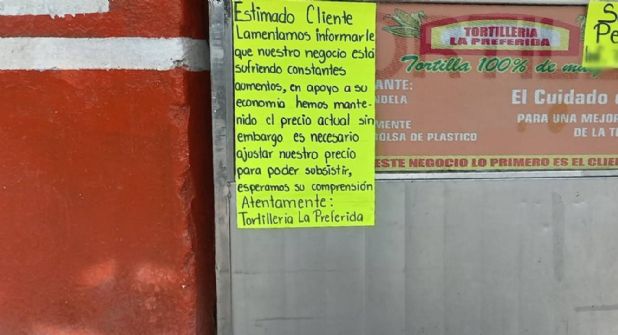 Estimado Cliente
Lamentamos informarle
que nuestro negocio está
sufriendo constantes
aumentos, en apoyo a su
economia hemos mante-
nido el precio actual sin
embargo es necesario
ajustar nuestro precio
para poder subsistir,
esperamos su comprensión
Atentamente:
Tortilleria La Preferida
TORTILLERIA
LA PREFERIDA
Tortilla 100% de
ANTE:
El Cuidado
PARA UNA MEJOR
DE LA
MENTE
BOLSA DE PLASTICO
ESTE NEGOCIO LO PRIMERO ES EL CLIE
S
Pe